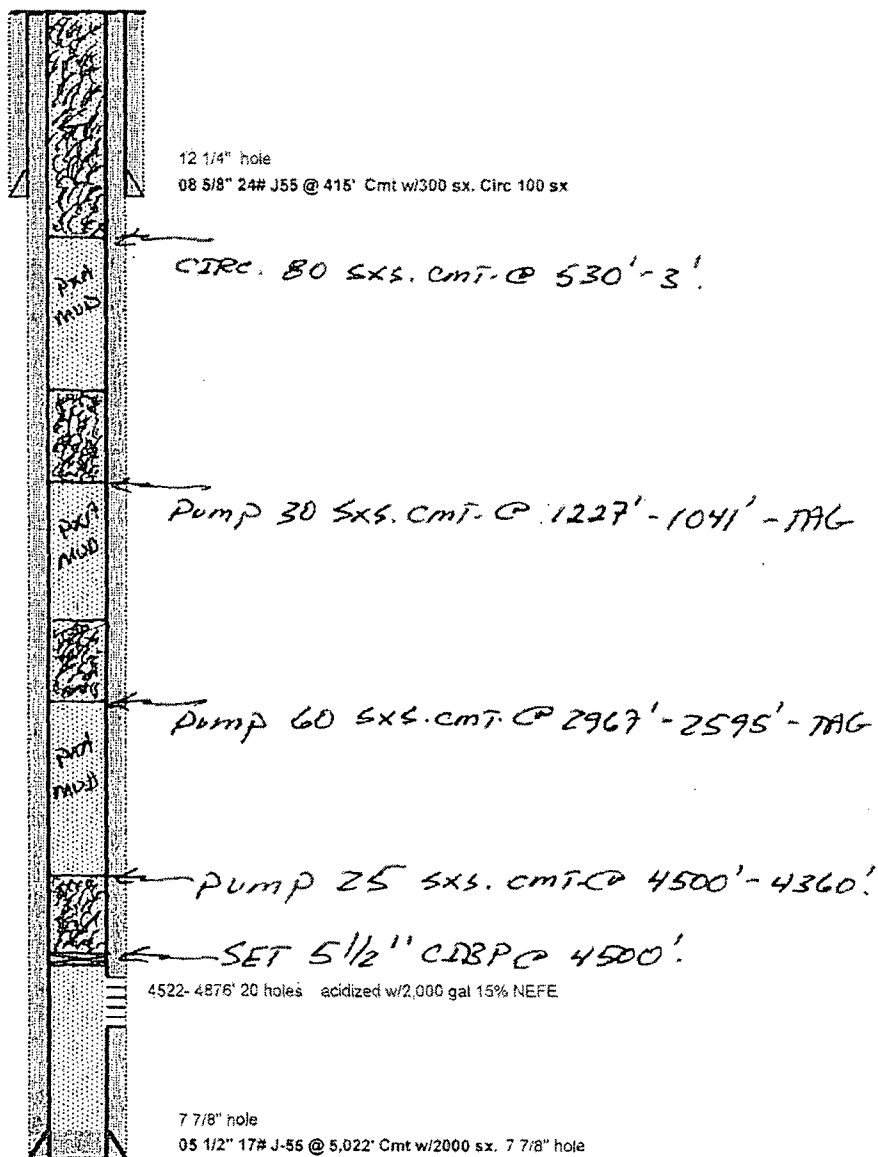 12 1/4" hole
08 5/8" 24# J55 @ 415' Cmt w/300 sx. Circ 100 sx
CIRC. 80 SXS. CMT. @ 530'-3'.
P&A
MUD
Pump 30 SXS. CMT. @ 1227'-1041' - TAG
P&A
MUD
Pump 60 SXS. CMT. @ 2967'-2595' - TAG
P&A
MUD
Pump 25 SXS. CMT. @ 4500'-4360'.
SET 5 1/2" CIBP @ 4500'.
4522- 4876' 20 holes acidized w/2,000 gal 15% NEFE
7 7/8" hole
05 1/2" 17# J-55 @ 5,022' Cmt w/2000 sx. 7 7/8" hole